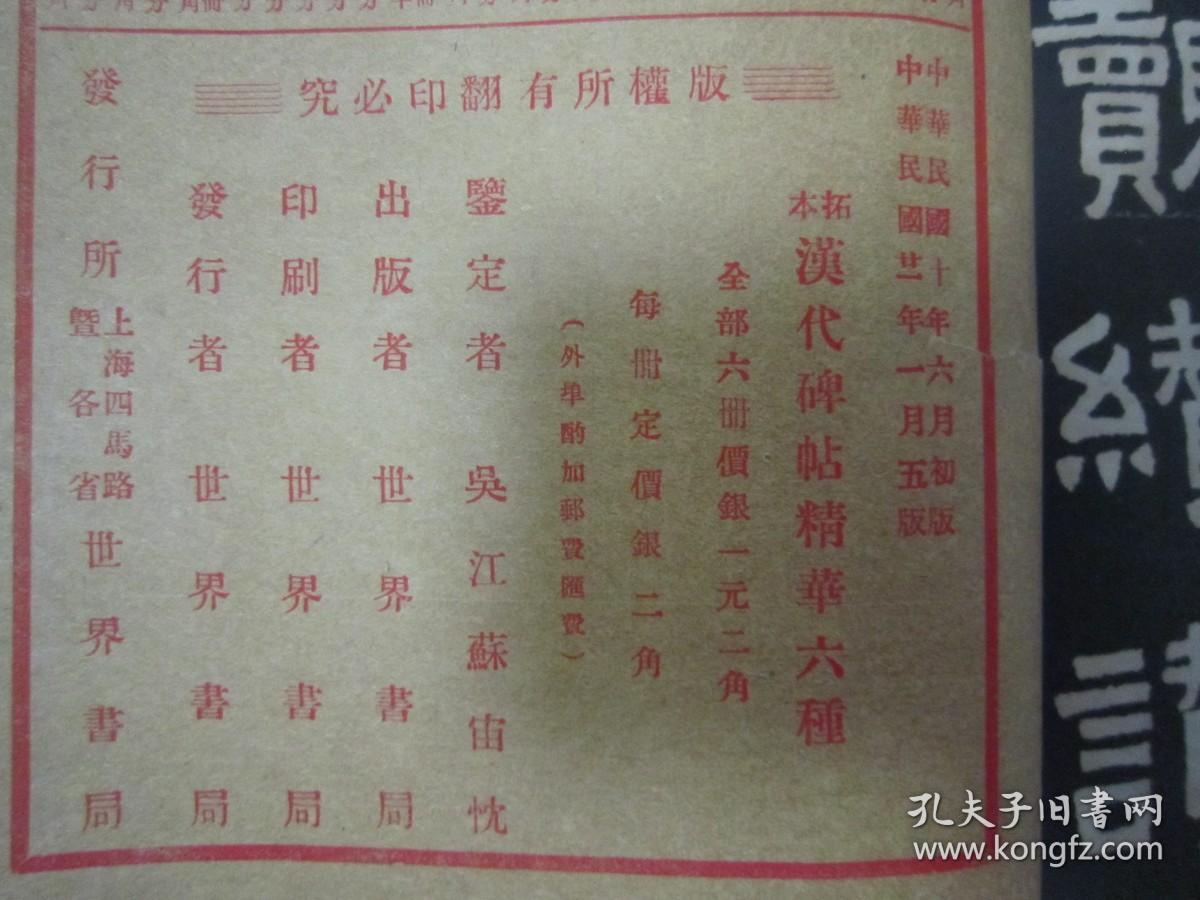 中華民國十年六月初版
中華民國廿一年一月五版
拓本漢代碑帖精華六種
全部六冊價銀一元二角
每冊定價銀二角
(外埠酌加郵費匯費)
版權所有翻印必究
鑒定者 吳江蘇宙忱
出版者 世界書局
印刷者 世界書局
發行者 世界書局
發行所 上海四馬路暨各省世界書局
孔夫子旧书网
www.kongfz.com